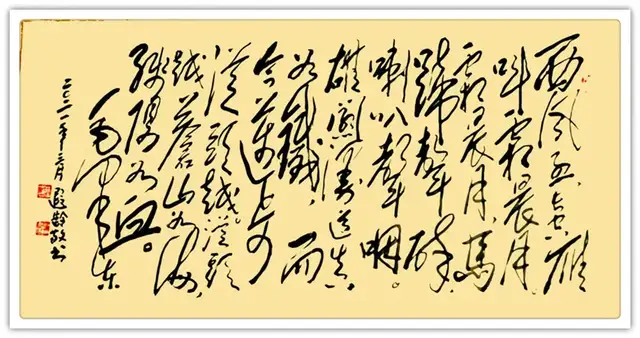 西风烈,长空雁
叫霜晨月。
霜晨月,马
蹄声碎,
喇叭声咽。
雄关漫道真
如铁,而
今迈步
从头越。从头
越,苍山如海,
残阳如血。
毛泽东
二〇二一年 月 遐龄敬书